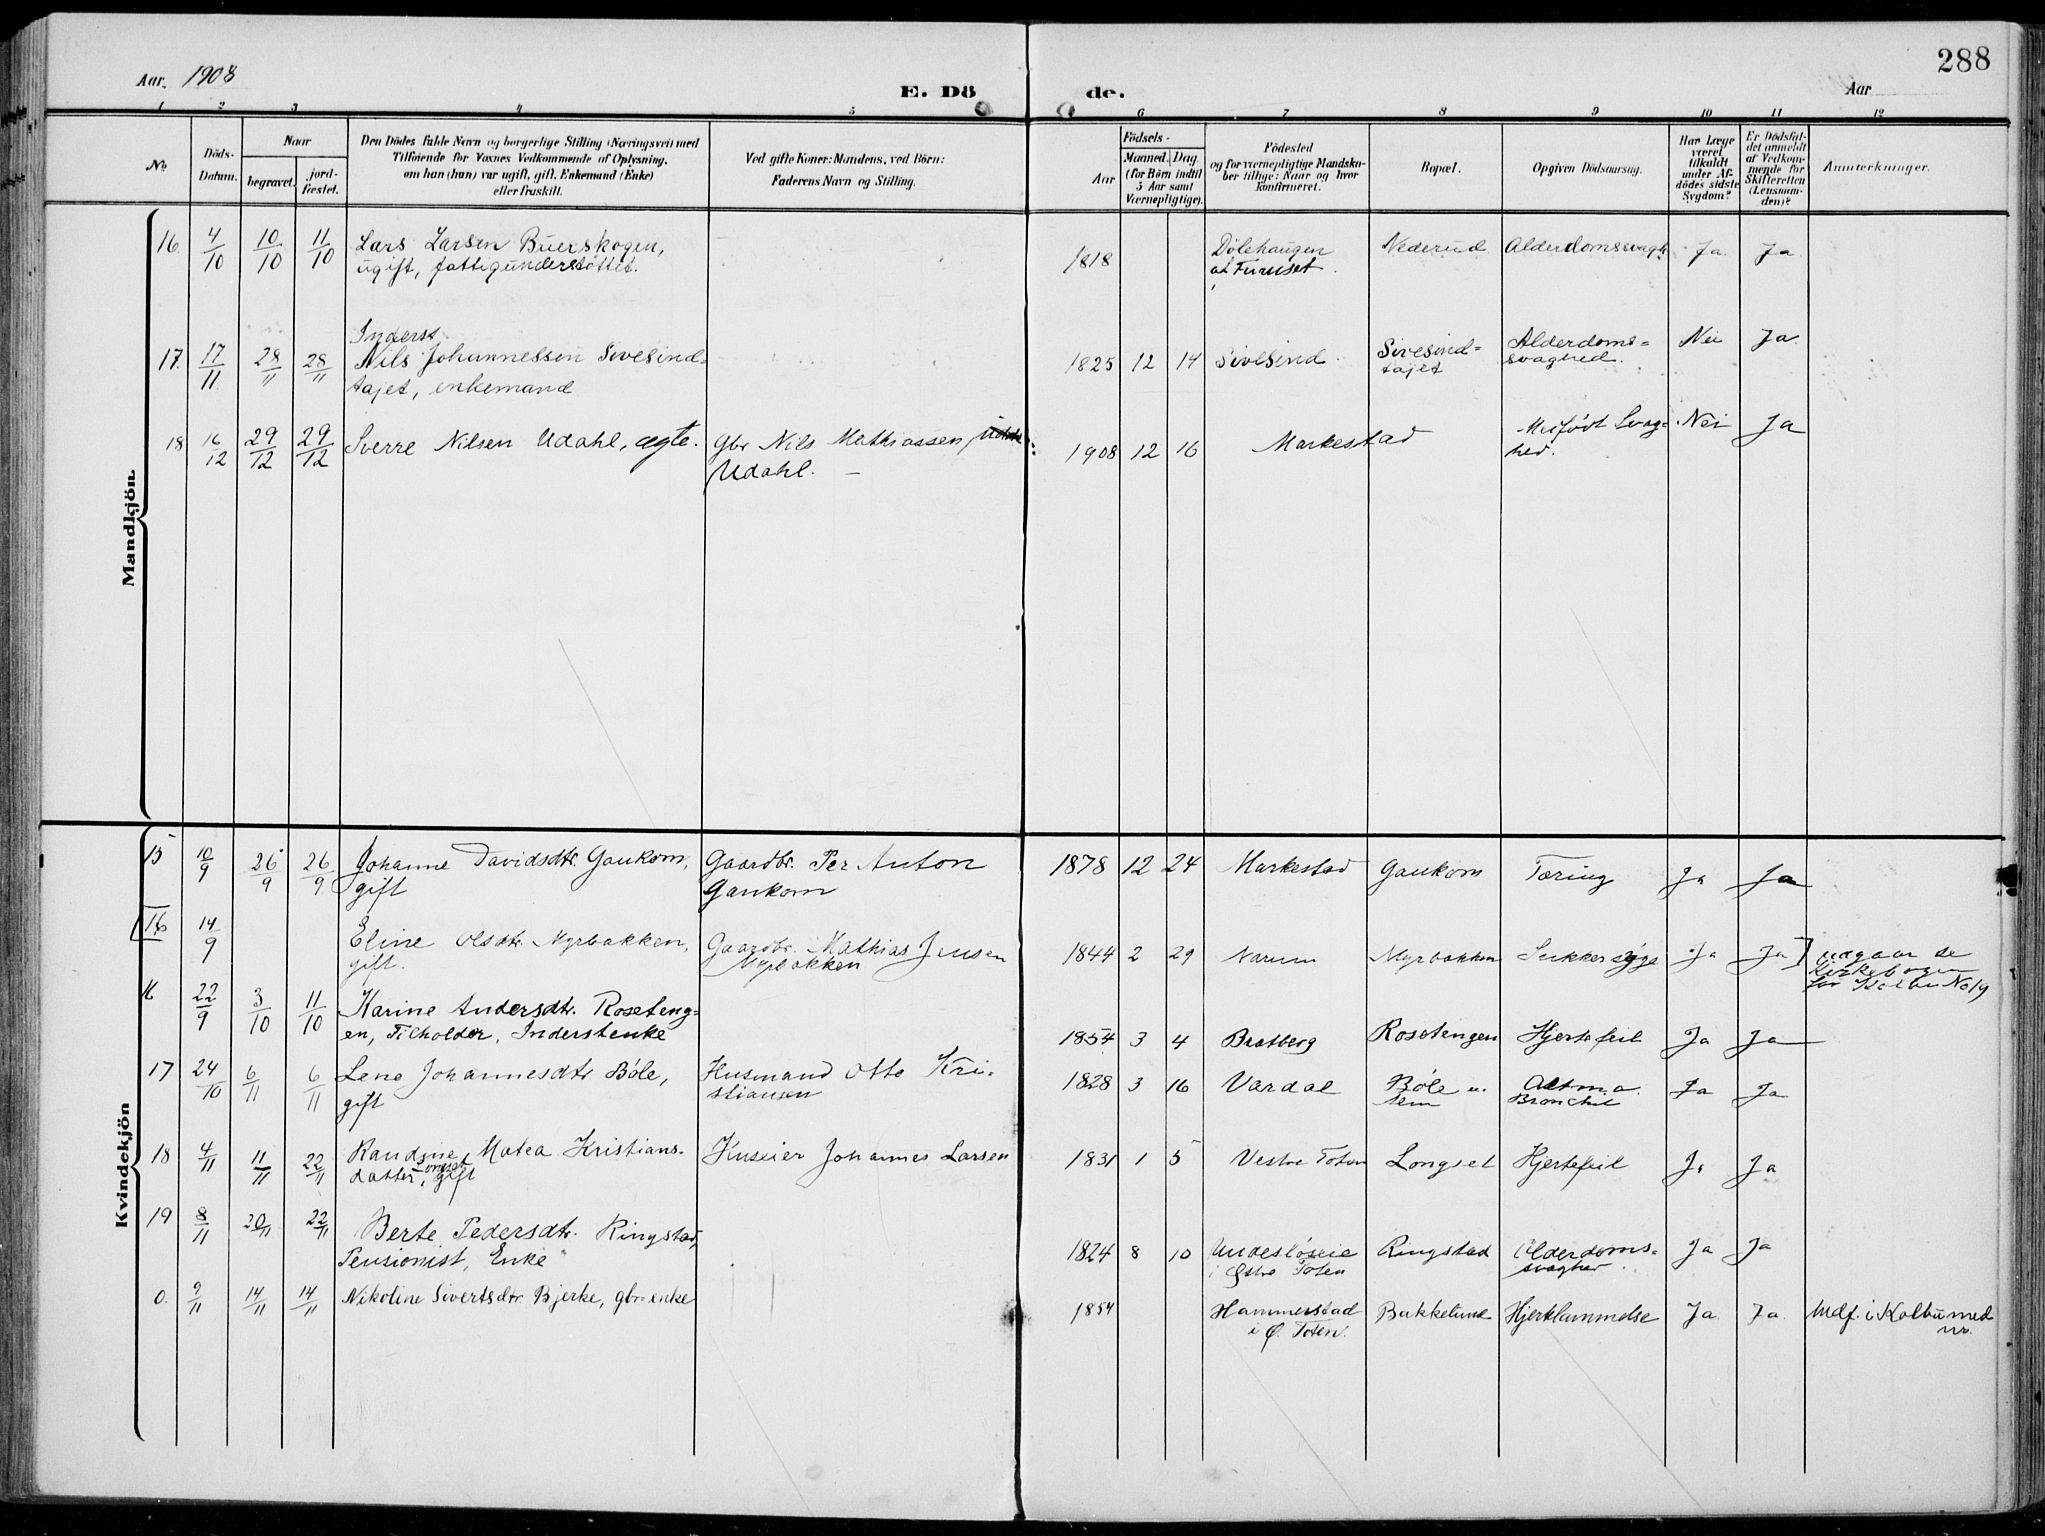 288
Aar 1908
E. Dö de.
Aar
1 2 3 4 5 6 7 8 9 10 11 12
No.
Döds-
Datum.
Naar
begravet.
jord-
fæstet.
Den Dödes fulde Navn og borgerlige Stilling (Næringsvei) med
Tilföiende for Voxnes Vedkommende af Oplysning,
om han (hun) var ugift, gift, Enkemand (Enke)
eller fraskilt.
Ved gifte Koner: Mandens, ved Börn:
Faderens Navn og Stilling.
Födsels-
Aar
Maaned. Dag.
(for Börn indtil
5 Aar samt
Værnepligtige).
Födested
og for værnepligtige Mandska-
ber tillige: Naar og hvor
konfirmeret.
Bopæl.
Opgiven Dödsaarsag.
Har Læge
været
tilkaldt
under Af-
dödes sidste
Sygdom?
Er Dödsfal-
det anmeldt
af Vedkom-
mende for
Skifteretten
(Lensman-
den)?
Anmerkninger.
Mandkjön
16. 4/10 10/10 11/10 Lars Larsen Buerskogen,
ugift, fattigunderstöttet.
1818 Dölehaugen
at Furuset.
Nederud Alderdomssvagh. Ja Ja
17. 17/11 28/11 28/11 Inderst
Nils Johannessen Sivesind=
tajet, enkemand
1825 12 14 Sivesind. Sivesind=
tajet
Alderdoms=
svaghed. Nei Ja.
18 16/12 29/12 29/12 Sverre Nilsen Udahl, ægte. Gbr Nils Mathiassen
Udahl. –
1908 12 16 Markestad Medfödt Svag-
hed. Nei Ja
Kvindekjön
15 10/9 26/9 26/9 Johanne Davidsdtr. Gaukom,
gift
Gaardbr. Per Anton
Gaukom
1878 12 24 Markestad Gaukom Tæring Ja Ja
16 14/9 Eline Olsdtr. Myrbakken,
gift.
Gaardbr. Mathias Jensen
Myrbakken
1844 2 29 Narum Myrbakken Sukkersyge Ja Ja udgaar se
Kirkebogen
for Kolbu No 19
16 22/9 3/10 11/10 Karine Andersdtr. Roseteng=
en, Tilholder, Inderstenke
1854 3 4 Bratberg Rosetengen Hjertefeil Ja Ja
17 24/10 6/11 6/11 Lene Johannesdtr Böle,
gift
Husmand Otto Kri-
stiansen
1828 3 16 Vardal Böle u.
Sem
Astma.
Bronchit Ja Ja
18 4/11 11/11 22/11 Randine Matea Kristians-
datter Longset, gift
Huseier Johannes Larsen
1831 1 5 Vestre Toten Longset Hjertefeil Ja Ja
19 8/11 20/11 22/11 Berte Pedersdtr. Ringstad,
Pensionist, Enke
1824 8 10
i Östre Toten
Ringstad Alderdoms=
svaghed. Ja Ja
0. 9/11 14/11 14/11 Nikoline Sivertsdtr. Bjerke, gbr=enke
1854 Hammerstad
i Ø. Toten.
Bakkelund Hjertelammelse Ja. Ja. Indf. i Kolbu med
nr.